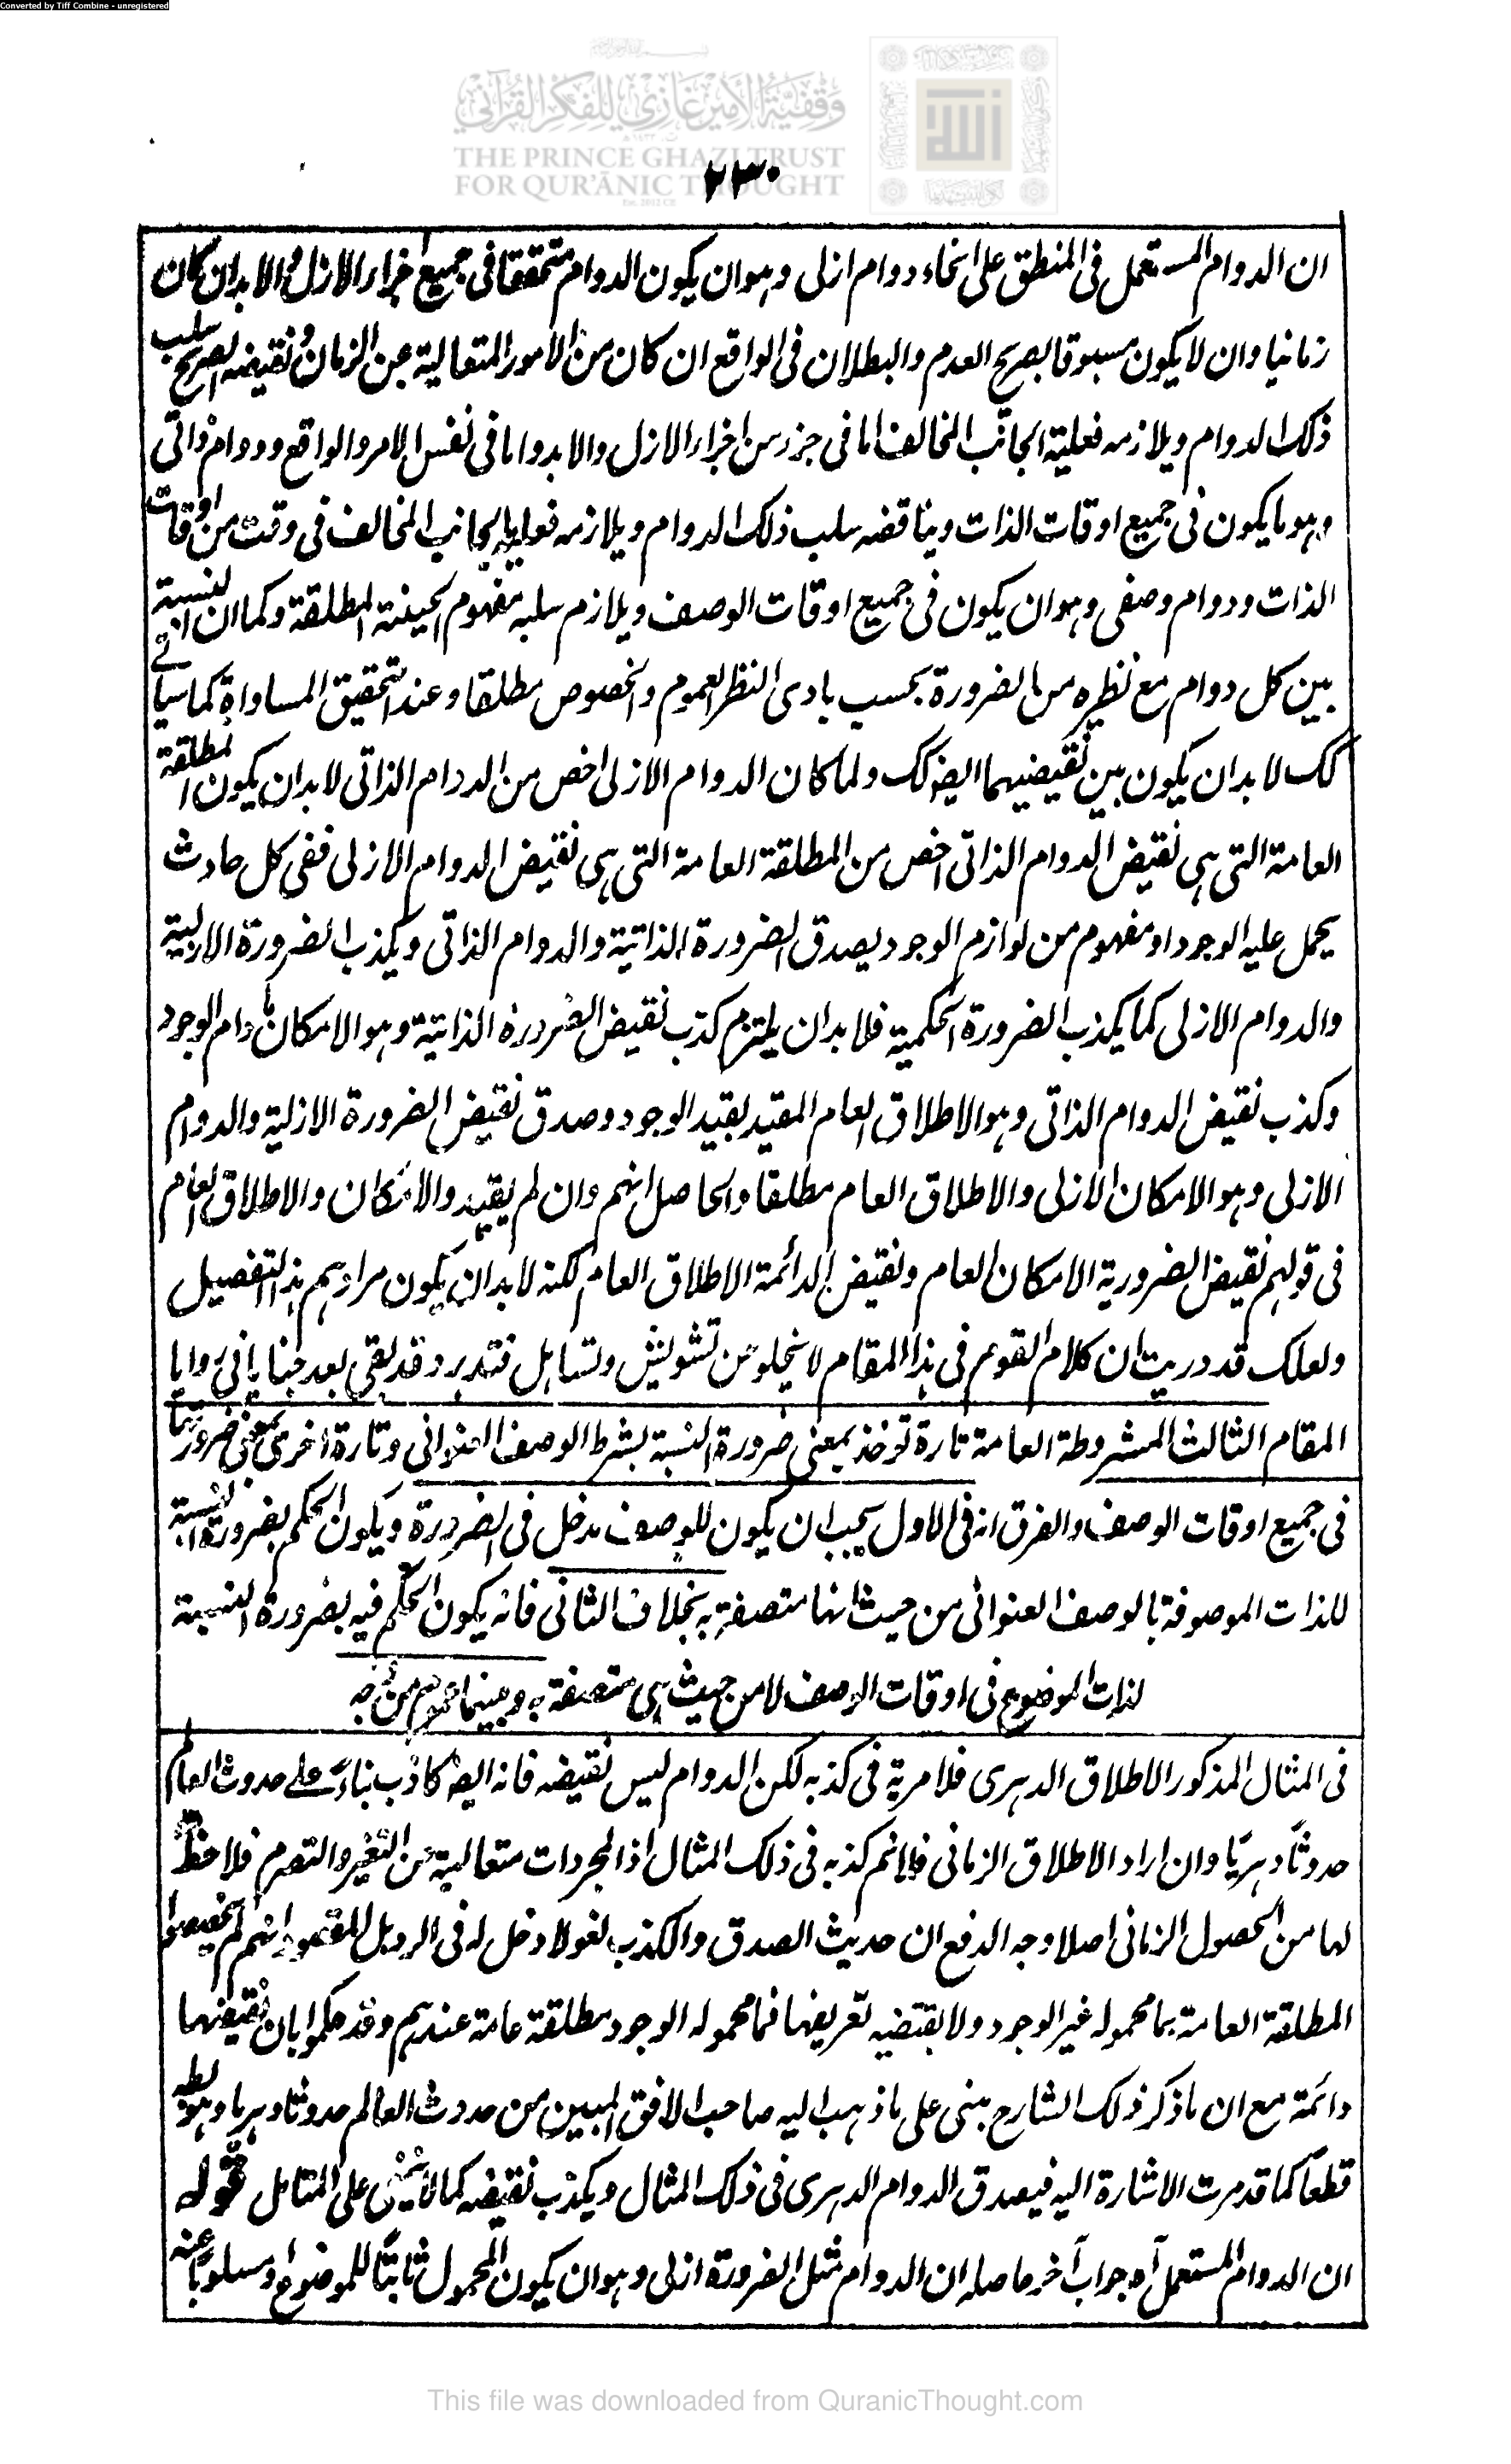 Converted by Tiff Combine - unregistered
وقفية الأمير غازي للفكر القرآني
THE PRINCE GHAZI TRUST
FOR QUR'ĀNIC THOUGHT
٢٣٠
ان الدوام المستعمل فى المنطق على انحاء دوام ازلى وهو ان يكون الدوام متحققا فى جميع اجزاء الازل والابد ان كان
زمانيا وان لا يكون مسبوقا بصريح العدم والبطلان فى الواقع ان كان من الامور المتعالية عن الزمان ونقيضه الصريح سلب
ذلك الدوام ويلازمه فعلية الجانب المخالف اما فى جزء من اجزاء الازل والابد واما فى نفس الامر والواقع ودوام ذاتى
وهو ما يكون فى جميع اوقات الذات ويناقضه سلب ذلك الدوام ويلازمه فعلية الجانب المخالف فى وقت من اوقات
الذات ودوام وصفى وهو ان يكون فى جميع اوقات الوصف ويلازم سلبه مفهوم الحينية المطلقة وكما ان النسبة
بين كل دوام مع نظيره من الضرورة بحسب بادى النظر العموم والخصوص مطلقا وعند التحقيق المساواة كما سيأتى
كك لا بد ان يكون بين نقيضيهما ايضا كك ولما كان الدوام الازلى اخص من الدوام الذاتى لا بد ان يكون المطلقة
العامة التى هى نقيض الدوام الذاتى اخص من المطلقة العامة التى هى نقيض الدوام الازلى ففى كل حادث
يحمل عليه الوجود او مفهوم من لوازم الوجود يصدق الضرورة الذاتية والدوام الذاتى ويكذب الضرورة الازلية
والدوام الازلى كما يكذب الضرورة الحكمية فلا بد ان يلتزم كذب نقيض الضرورة الذاتية وهو الامكان ما دام الوجود
وكذب نقيض الدوام الذاتى وهو الاطلاق العام المقيد بقيد الوجود وصدق نقيض الضرورة الازلية والدوام
الازلى وهو الامكان الازلى والاطلاق العام مطلقا والحاصل انهم وان لم يقيدوا الامكان والاطلاق العام
فى قولهم نقيض الضرورية الامكان العام ونقيض الدائمة الاطلاق العام لكنه لا بد ان يكون مرادهم هذا التفصيل
ولعلك قد دريت ان كلام القوم فى هذا المقام لا يخلو عن تشويش وتساهل فتدبر وقد بقى بعد خبايا فى زوايا
المقام الثالث المشروطة العامة تارة تؤخذ بمعنى ضرورة النسبة بشرط الوصف العنوانى وتارة اخرى بمعنى ضرورتها
فى جميع اوقات الوصف والفرق انه فى الاول يجب ان يكون للوصف مدخل فى الضرورة ويكون الحكم بضرورة النسبة
للذات الموصوفة بالوصف العنوانى من حيث انها متصفة به بخلاف الثانى فانه يكون الحكم فيه بضرورة النسبة
لذات الموضوع فى اوقات الوصف لا من حيث هى متصفة به وبينهما عموم من وجه
فى المثال المذكور الاطلاق الدهرى فلا مرية فى كذبه لكن الدوام ليس نقيضه فانه ايضا كاذب بناءً على حدوث العالم
حدوثًا دهريًا وان اراد الاطلاق الزمانى فلا نم كذبه فى ذلك المثال اذ المجردات متعالية عن التغير والتصرم فلا حظ
لها من الحصول الزمانى اصلا وجه الدفع ان حديث الصدق والكذب لغو لا دخل له فى الرد بل المقصود انهم لم يخصصوا
المطلقة العامة بما محموله غير الوجود ولا يقتضيه تعريفها فما محموله الوجود مطلقة عامة عندهم وقد حكموا بان نقيضها
دائمة مع ان ما ذكر ذلك الشارح مبنى على ما ذهب اليه صاحب الافق المبين من حدوث العالم حدوثا دهريا وهو بط
قطعًا كما قد مرت الاشارة اليه فيصدق الدوام الدهرى فى ذلك المثال ويكذب نقيضه كما لا يخفى على المتامل قوله
ان الدوام المستعمل آه جواب آخر حاصله ان الدوام مثل الضرورة ازلى وهو ان يكون المحمول ثابتًا للموضوع او مسلوبًا عنه
This file was downloaded from QuranicThought.com